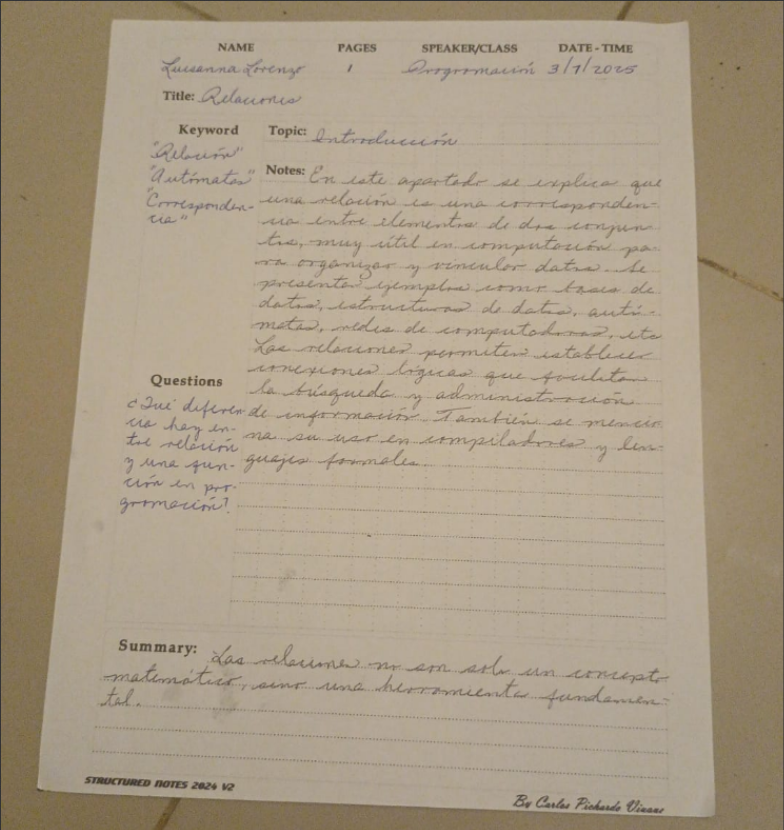 NAME PAGES SPEAKER/CLASS DATE - TIME
Luisanna Lorenzo 1 Programación 3/7/2025
Title: Relaciones
Keyword
"Relación"
"Autómatas"
"Corresponden-
cia"
Topic: Introducción
Notes: En este apartado se explica que
una relación es una corresponden-
cia entre elementos de dos conjun-
tos, muy útil en computación pa-
ra organizar y vincular datos. Se
presentan ejemplos como bases de
datos, estructuras de datos, autó-
matas, redes de computadoras, etc
Las relaciones permiten establecer
conexiones lógicas que facilitan
la búsqueda y administración
de información. También se mencio
na su uso en compiladores y len-
guajes formales.
Questions
¿Qué diferen
cia hay en-
tre relación
y una fun-
ción en pro-
gramación?
Summary: Las relaciones no son solo un concepto
matemático, sino una herramienta fundamen-
tal.
STRUCTURED NOTES 2024 V2
By Carlos Pichardo Viuque